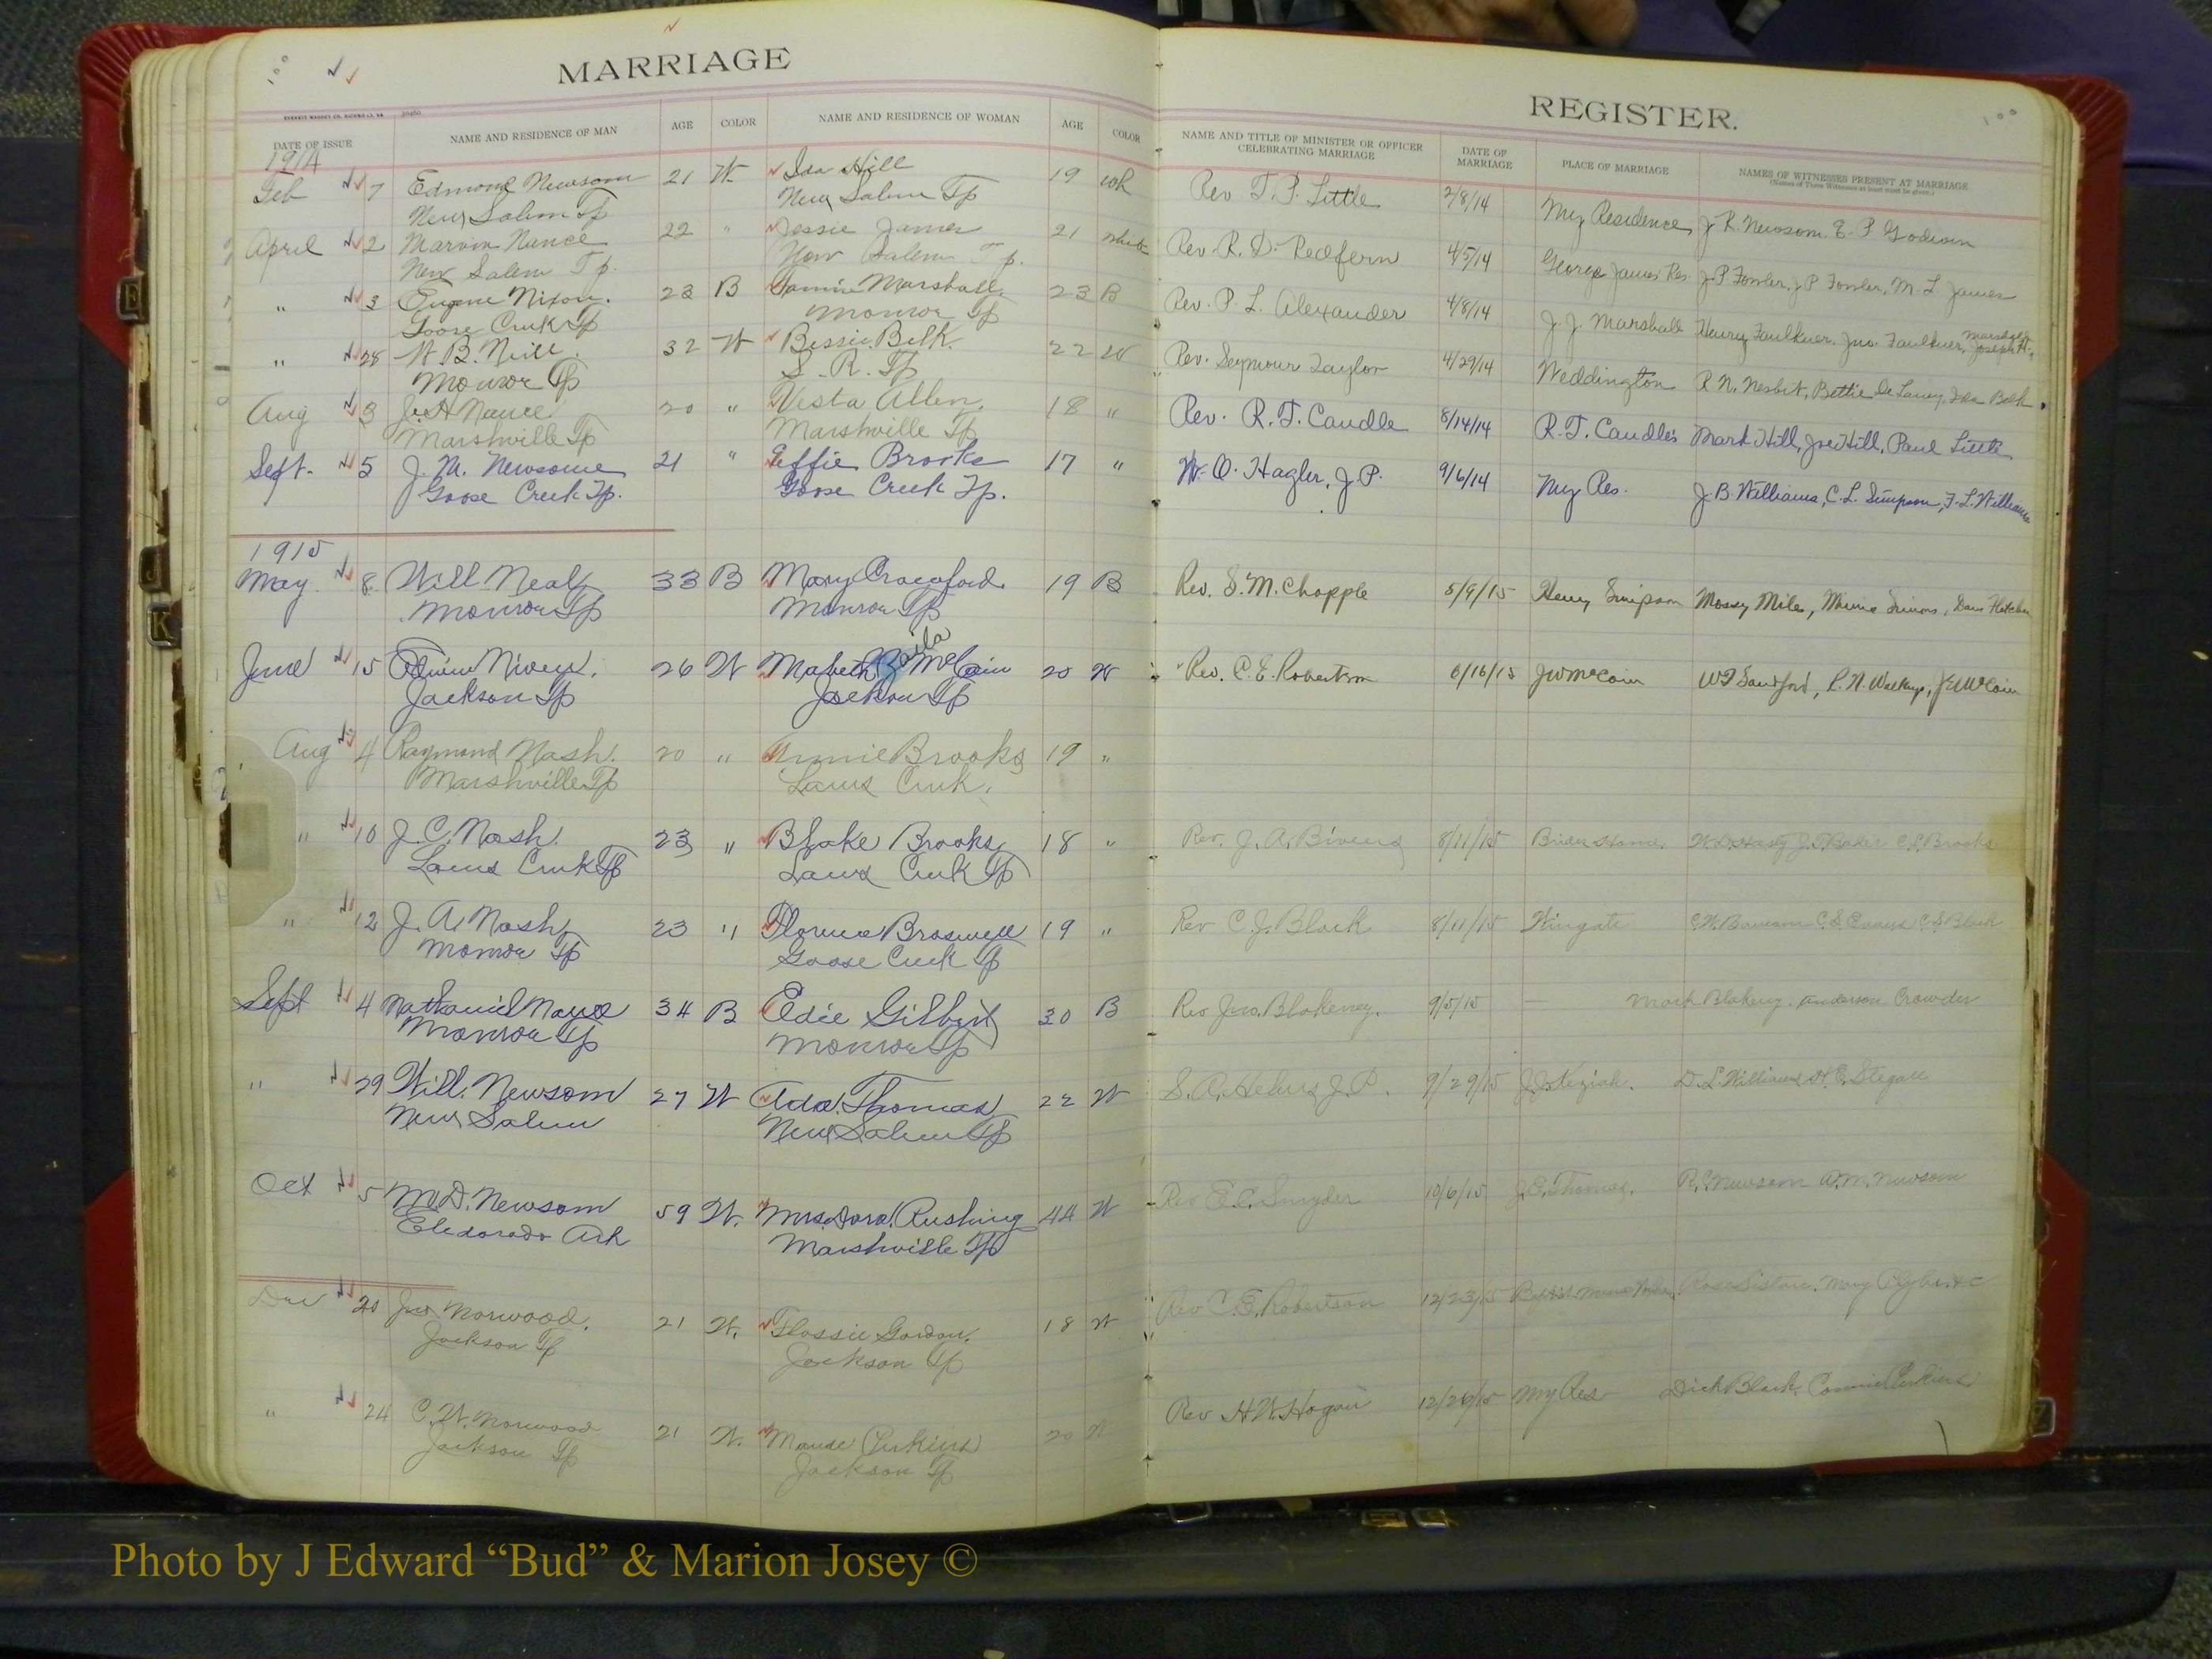 MARRIAGE
DATE OF ISSUE NAME AND RESIDENCE OF MAN AGE COLOR NAME AND RESIDENCE OF WOMAN AGE COLOR
1914
Feb 7 Edmond Newsom 21 W Ida Hill 19 wh
New Salem Tp New Salem Tp
April 2 Marvin Nance 22 " Jessie James 21 white
New Salem Tp. New Salem Tp.
" 3 Eugene Nixon. 23 B Marshall. 23 B
Goose Creek Tp Monroe Tp
" 28 W. B. Neill. 32 W Bessie Belk. 22 W
Monroe Tp S. R. Tp
Aug 3 J. H Nance 20 " Vesta Allen. 18 "
Marshville Tp Marshville Tp
Sept. 5 J. M. Newsome 21 " Effie Brooks 17 "
Goose Creek Tp. Goose Creek Tp.
1915
May 8 Will Nealy 33 B Mary Crawford 19 B
Monroe Tp Monroe Tp
Zaila
June 15 Niven. 26 W McCain 20 W
Jackson Tp Jackson Tp
Aug 4 Raymond Nash. 20 " Annie Brooks 19 "
Marshville Tp Lanes Creek.
" 10 J. C. Nash. 23 " Blake Brooks 18 "
Lanes Creek Tp Lanes Creek Tp
" 12 J. A. Nash 23 " Florence Braswell 19 "
Monroe Tp Goose Creek Tp
Sept 4 Nathaniel 34 B Edie Gilbert 30 B
Monroe Tp Monroe Tp
" 29 Will. Newsom 27 W Ada Thomas 22 W
New Salem New Salem Tp
Oct 5 M. D. Newsom 59 W. Mrs. Dora Rushing 44 W
Eledorado Ark Marshville Tp
Dec 20 Jno Norwood. 21 W. Flossie Gordon. 18 W
Jackson Tp Jackson Tp
" 24 C. W. Norwood 21 W. Maude Perkins 20 W
Jackson Tp Jackson Tp
REGISTER.
NAME AND TITLE OF MINISTER OR OFFICER CELEBRATING MARRIAGE DATE OF MARRIAGE PLACE OF MARRIAGE NAMES OF WITNESSES PRESENT AT MARRIAGE
(Names of Three Witnesses at least must be given.)
Rev T. P. Little 2/8/14 My Residence J. R. Newsom E. P Godwin
Rev. R. D. Redfern 4/5/14 George James Res. J. P Fowler, J P Fowler, M. L James
Rev. P. L. Alexander 4/8/14 J. J. Marshall Henry Faulkner, Jno. Faulkner, Joseph H. Marshall
Rev. Seymour Taylor 4/29/14 Weddington R. N. Nesbit, Bettie De Laney, Ida Belk.
Rev. R. T. Caudle 8/14/14 R. T. Caudle's Mark Hill, Joe Hill, Paul Little
W. O. Hagler, J. P. 9/6/14 My Res. J. B. Williams, C. L. Simpson, F. L. Williams
Rev. S. M. Chapple 5/9/15 Henry Simpson Miles, Simons, Fletcher
Rev. C. E. Robertson 6/16/15 J W McCain W. Sandford, P. N. Walkup, J W McCain
Rev. J. A. Bivens 8/11/15 Brides Home. W. D. Hasty J. T. Baker C. L. Brooks
Rev C. J. Black 8/11/15 Wingate C. S. Black
Rev Jno. Blakeney. 9/5/15 — Mark Blakeny. Anderson Crowder
S. A. Helms J. P. 9/29/15 J. J. Keziah. D. L. Williams H. E. Stegall
Rev E. C. Snyder 10/6/15 J. E. Thomas. R. C. Newsom A. M. Newsom
Rev C. E. Robertson 12/23/15 Rosa Sistare. Mary Plyler. &c
Rev H. W. Hogan 12/26/15 My Res Dick Black, Connie Perkins
Photo by J Edward “Bud” & Marion Josey ©